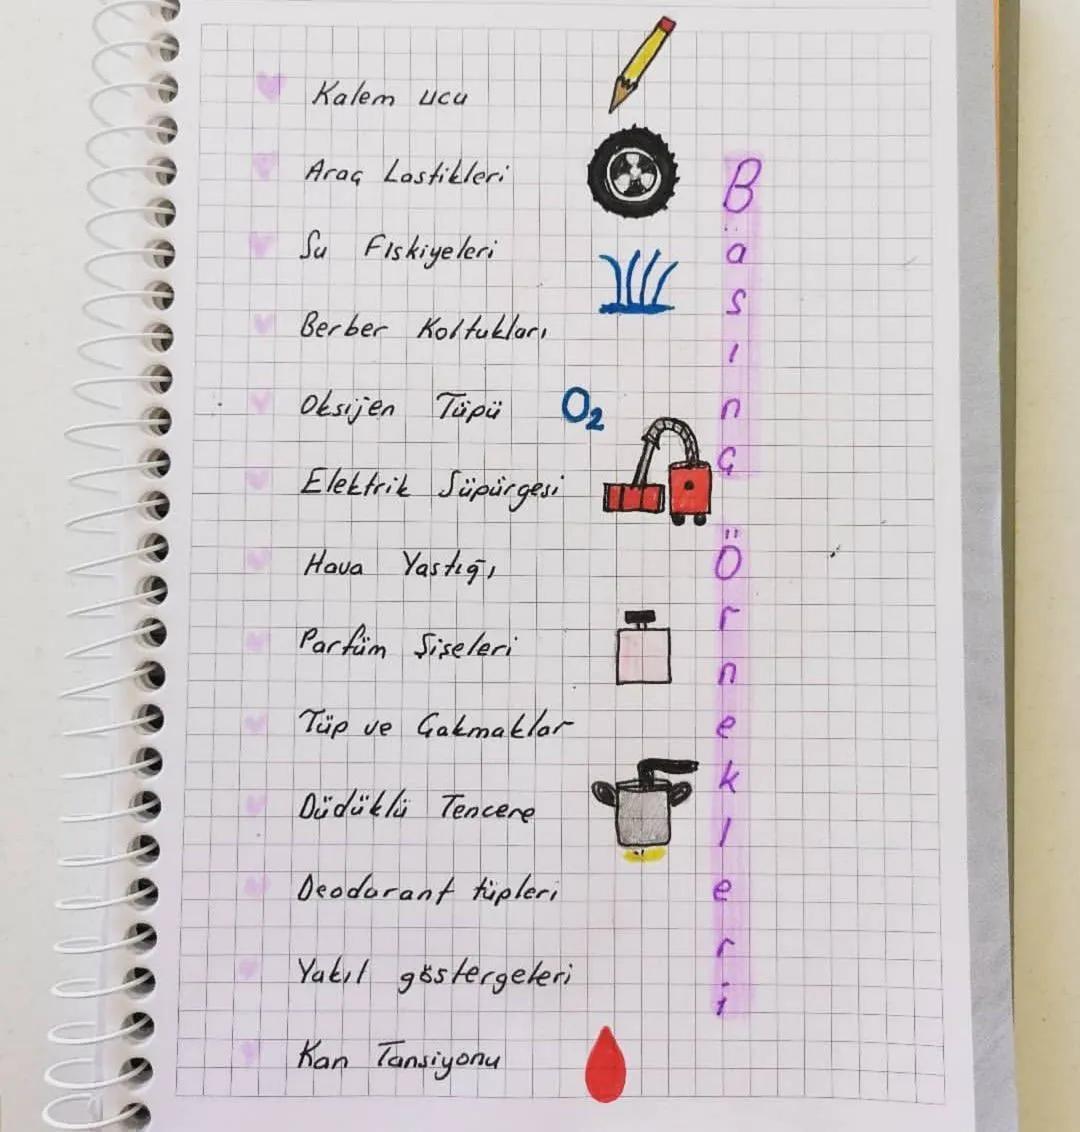 Kalem ucu
Araç Lastikleri
Su Fıskiyeleri
Berber Koltukları
Oksijen Tüpü O₂
Elektrik Süpürgesi
Hava Yastığı
Parfüm Şişeleri
Tüp ve Çakmaklar
Düdüklü Tencere
Deodorant tüpleri
Yakıl göstergeleri
Kan Tansiyonu
Basınç Örnekleri